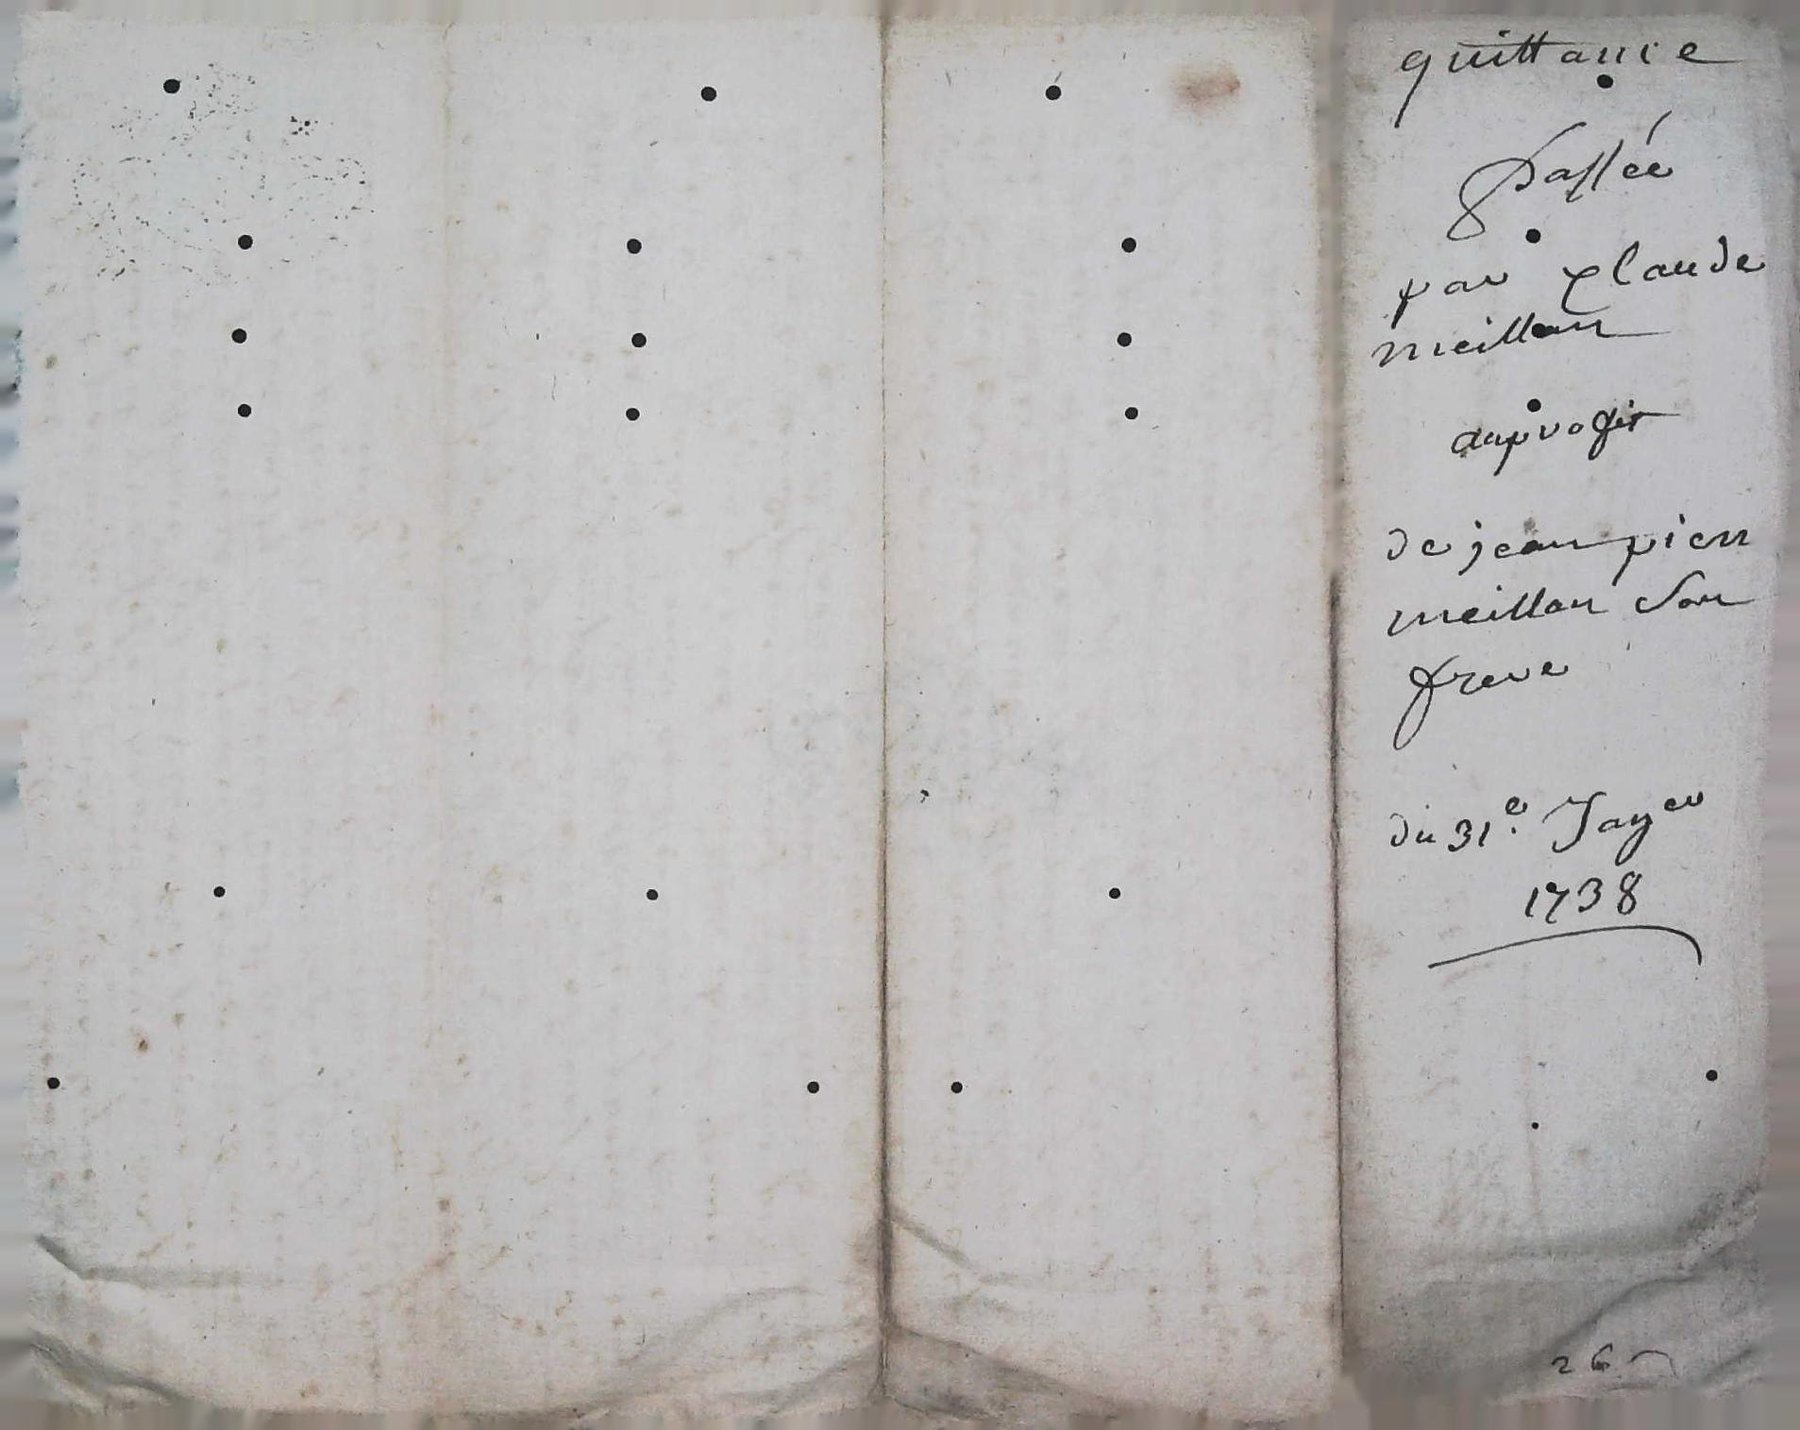 quittance
passée
par Claude
meillan
auproffit
de jean pierr
meillan son
frere
du 31e. Jayer
1738
26